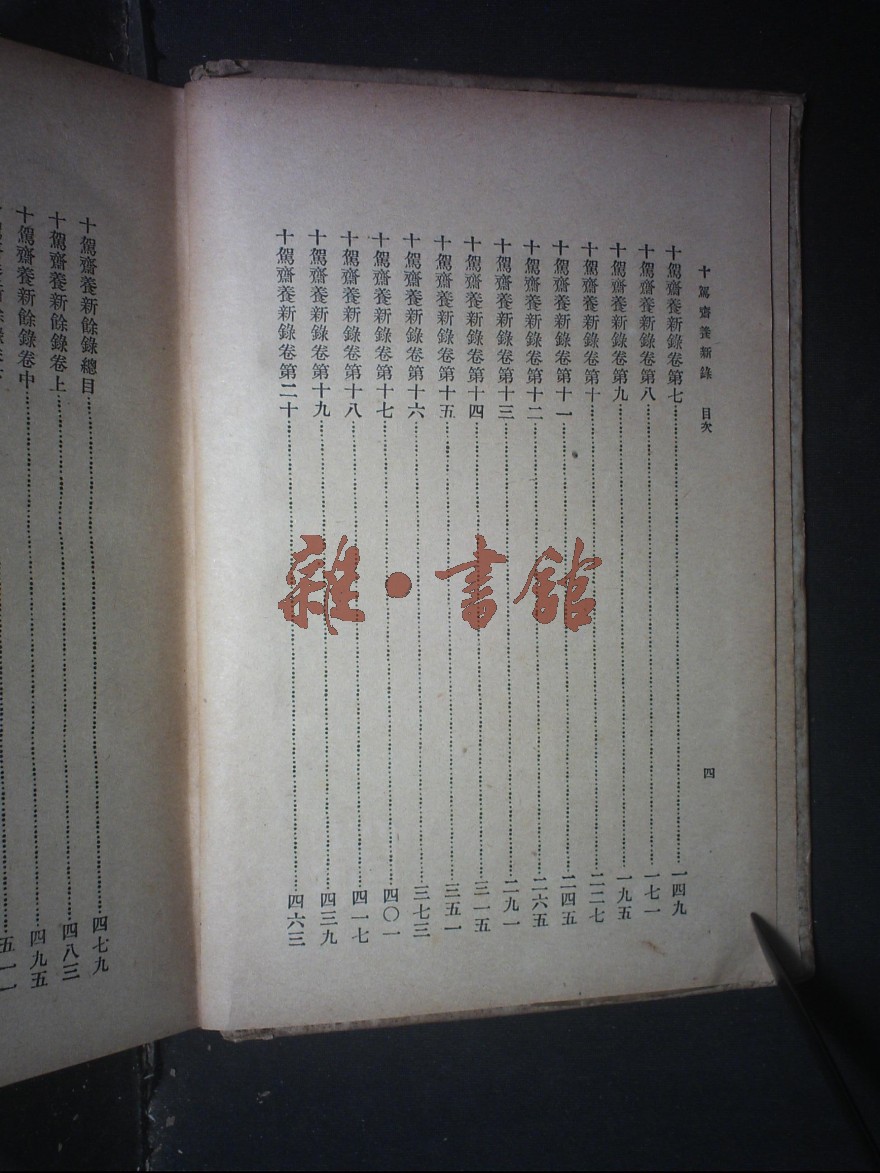 十駕齋養新錄 目次
四
十駕齋養新錄卷第七……一四九
十駕齋養新錄卷第八……一七一
十駕齋養新錄卷第九……一九五
十駕齋養新錄卷第十……二二七
十駕齋養新錄卷第十一……二四五
十駕齋養新錄卷第十二……二六五
十駕齋養新錄卷第十三……二九一
十駕齋養新錄卷第十四……三一五
十駕齋養新錄卷第十五……三五一
十駕齋養新錄卷第十六……三七三
十駕齋養新錄卷第十七……四〇一
十駕齋養新錄卷第十八……四一七
十駕齋養新錄卷第十九……四三九
十駕齋養新錄卷第二十……四六三
十駕齋養新餘錄總目……四七九
十駕齋養新餘錄卷上……四八三
十駕齋養新餘錄卷中……四九五
雜·書館